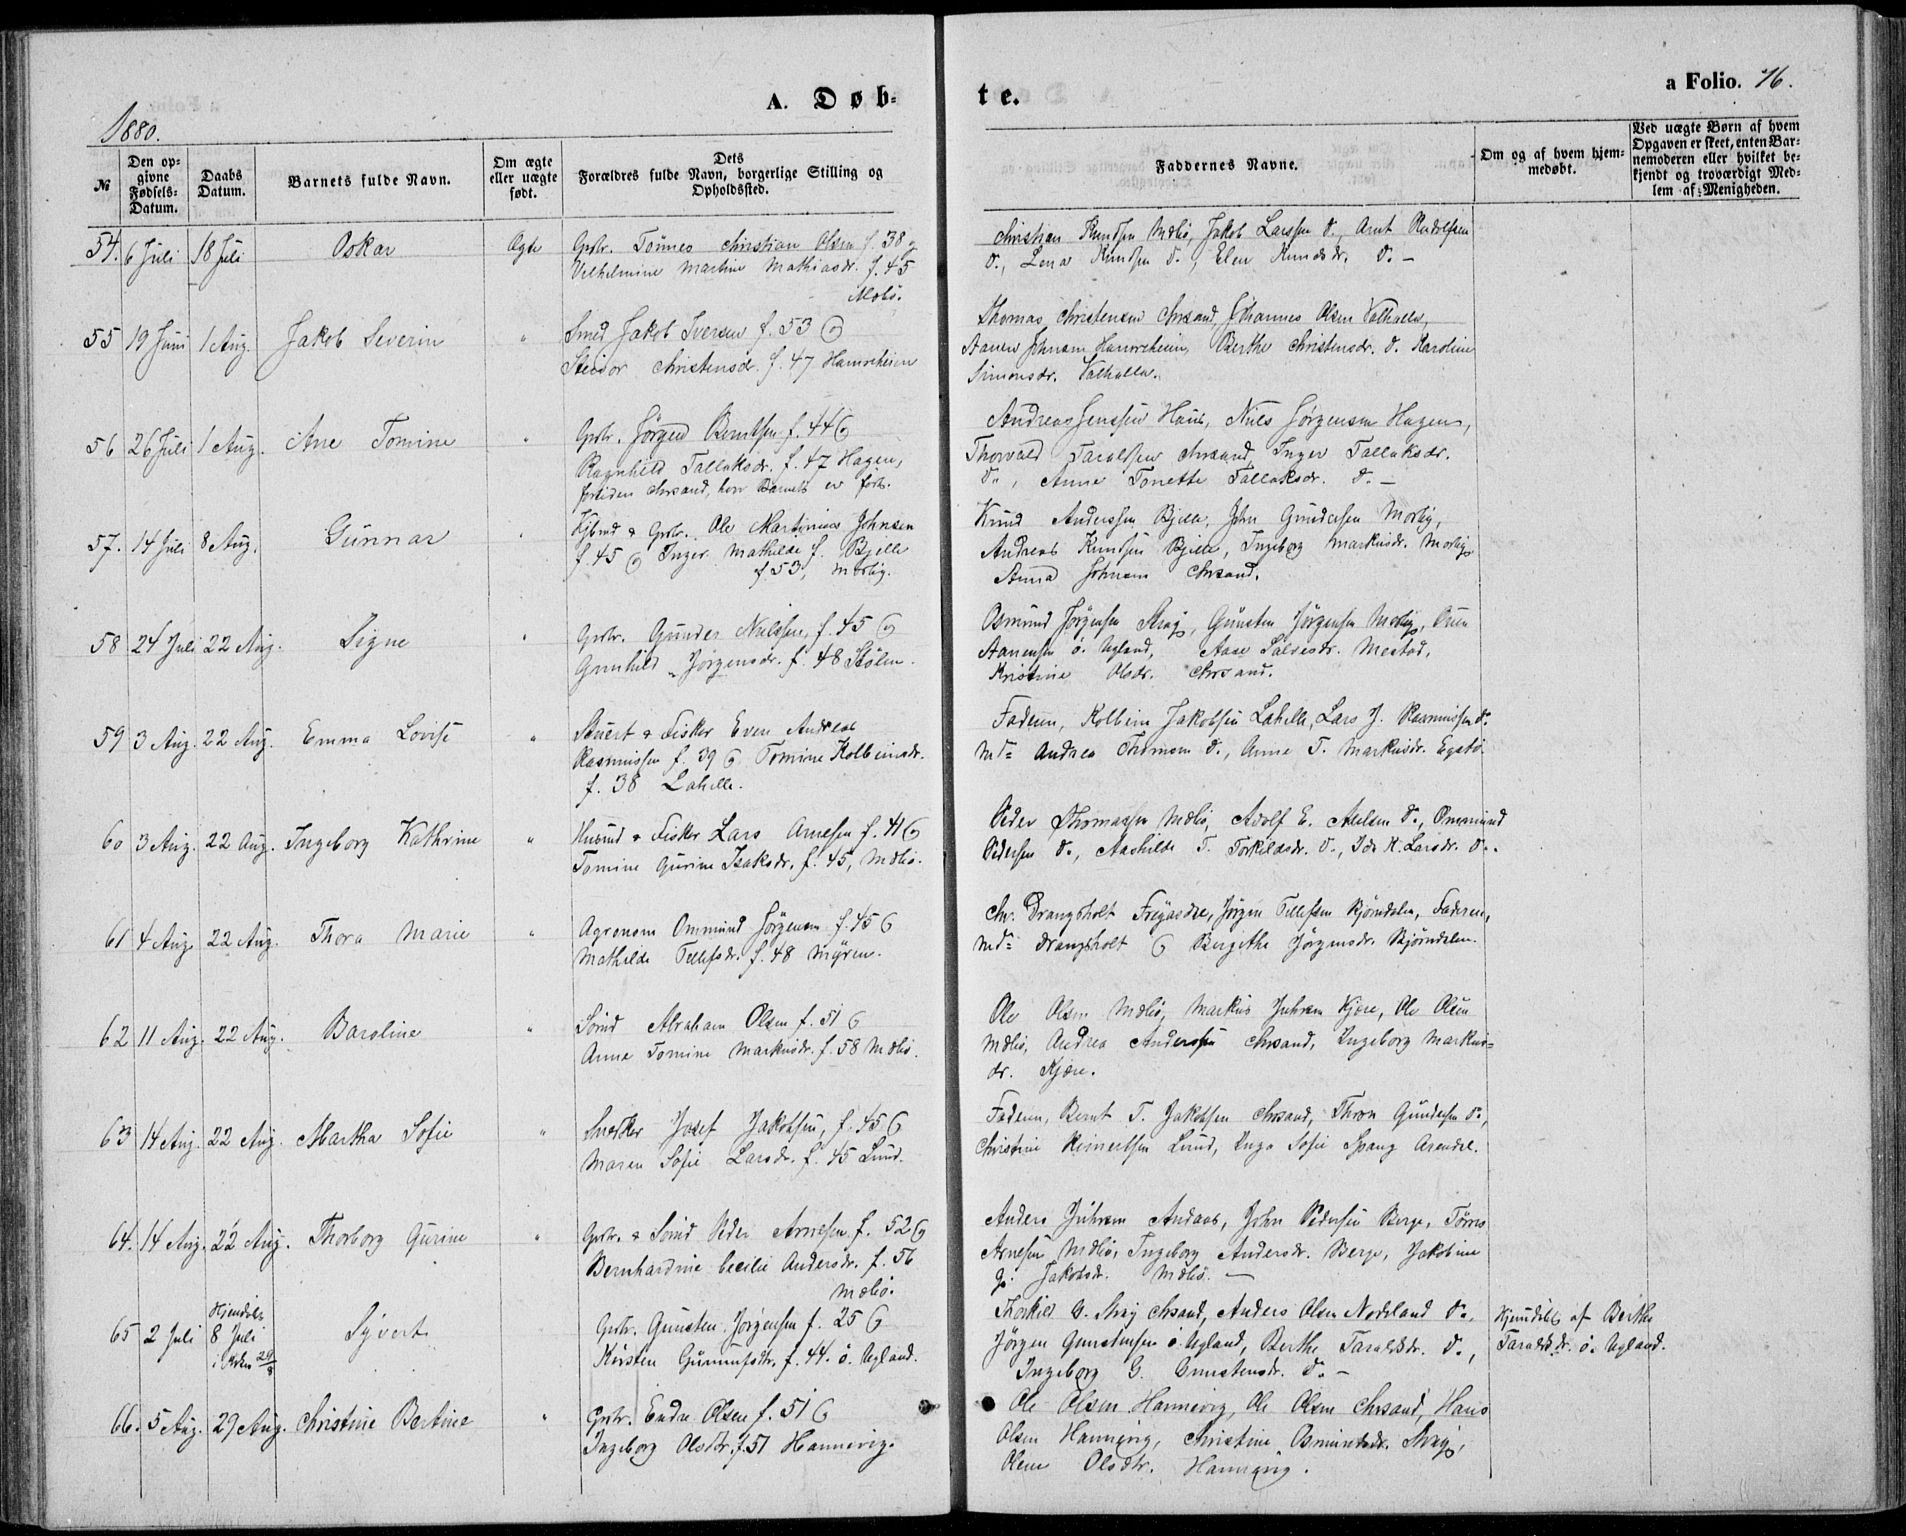 1880.
A. Døb-
te.
a Folio. 76.
№
Den opgivne Fødsels-Datum.
Daabs Datum.
Barnets fulde Navn.
Om ægte eller uægte født.
Dets Forældres fulde Navn, borgerlige Stilling og Opholdssted.
Faddernes Navne.
Om og af hvem hjemmedøbt.
Ved uægte Børn af hvem Opgaven er skeet, enten Barnemoderen eller hvilket bekjendt og troværdigt Medlem af Menigheden.
54. 6 Juli 18 Juli Oskar Ægte Grdr. Tönnes Christian Olsen f. 38 &
Vilhelmine Martine Mathiasdr. f. 45
Mebö.
Christian Knudsen Mebö, Jakob Larssen d., Arnt Rudolfsen
d., Lena Knudsen d., Elen Knudsdr. d. –
55 19 Juni 1 Aug. Jakob Severin " Smed Jakob Iversen f. 53 &
Steidor Christensdr. f. 47 Hamreheien
Thomas Christensen Chrsand, Johannes Olsen Valhalla,
Aanen Johnsen Hamreheien, Berthe Christensdr. d. Karoline
Simonsdr. Valhalla.
56 26 Juli 1 Aug. Ane Tomine " Grdr. Jörgen Berntsen f. 44 &
Ragnhild Tallaksdr. f. 47 Hagen,
fortiden Chrsand, hvor Barnet er født.
Andreas Jenssen Haus, Niels Jörgensen Hagen,
Thorvald Taralsen Chrsand, Inger Tallaksdr.
d., Anne Tonette Tallaksdr. d. –
57. 14 Juli 8 Aug. Gunnar " & Grdr. Ole Martinius Johnsen
f. 45 & Inger Mathilde J. Bjelle
f 53, Mosby.
Knud Anderssen Bjelle, John Gundersen Mosby,
Andreas Knudsen Bjelle, Ingeborg Markusdr. Mosby
Anna Johnsen Chrsand.
58 24 Juli 22 Aug. Signe " Grdr. Gunder Nielssen, f. 45 &
Gunhild Jörgensdr. f. 48 Stölen.
Osmund Jörgensen Strag, Gunsten Jörgensen Mosby,
Aanensen ö. Ugland, Aase Salvesdr. Mestad,
Kristine Olsdr. Chrsand.
59 3 Aug. 22 Aug. Emma Lovise " & Fisker Even Andreas
Rasmussen f. 39 & Tomine Kolbeinsdr.
f. 38 Lahelle.
Faderen, Kolbein Jakobsen Lahelle, Lars J. Rasmussen d.
Md= Andrea Thomsen d., Anne T. Markusdr. Egstö.
60 3 Aug. 22 Aug. Ingeborg Kathrine " Husmd & Fisker Lars Arnesen f. 41 &
Tomine Gurine Isaksdr. f. 45, Mebö.
Peder Thomassen Mebö, Adolf E. Nielsen d., Ommund
Pedersen d., Aashilde T. Torkildsdr. d., Ide K. Larsdr. d.
61 4 Aug 22 Aug. Thora Marie " Agronom Ommund Jörgensen f. 45 &
Mathilde Tellefsdr. f. 48 Myren.
Chr. Drangsholt Jörgen Tellefsen Bjørndalen, Faderen,
Md= Drangsholt & Bergithe Jörgensdr. Bjørndalen.
62 11 Aug. 22 Aug. Baroline " Sömd Abraham Olsen f. 51 &
Anne Tomine Markusdr. f. 58 Mebö.
Ole Olsen Mebö, Markus Juhren Kjære, Ole Olsen
Mebö, Andrea Anderssen Chrsand, Ingeborg Markus-
dr. Kjære.
63 14 Aug. 22 Aug. Martha Sofie " Snedker Josef Jakobsen, f. 45 &
Maren Sofie Larsdr. f. 45 Lund.
Faderen, Bernt T. Jakobsen Chrsand, Thron Gundersen d.,
Christine Reinertsen Lund, Inga Sofie Spang Arendal.
64. 14 Aug. 22 Aug. Thorborg Gurine " Grdr. & Sömd Peder Arnesen f. 52 &
Bernhardine Cecilie Andersdr. f. 56
Mebö.
Anders Juhren Andaas, John Pedersen Berge, Törres
Arnesen Mebö, Ingeborg Andersdr. Berge, Jakobine
G. Jakobsdr. Mebö. –
65 2 Juli Hjemdöbt 8 Juli i Kirken 29/8 Syvert Grdr. Gunsten Jörgensen f. 25 &
Kirsten Gunnufsdtr. f. 44. ö. Ugland.
Thorkild O. Strag Chrsand, Anders Olsen Nodeland d.,
Jörgen Gunstensen ö. Ugland, Berthe Taraldsdr. d.,
Ingeborg G. Gunstensdr. d. –
Hjemdöbt af Berthe
Taraldsdr. ö. Ugland.
66. 5 Aug. 29 Aug. Christine Bertine " Grdr. Endre Olsen f. 51 &
Ingeborg Olsdtr. f. 51 Hannevig.
Ole Olsen Hannevig, Ole Olsen Chrsand, Hans
Olsen Hannevig, Christine Osmundsdr. Strag,
Olene Olsdtr. Hannevig.